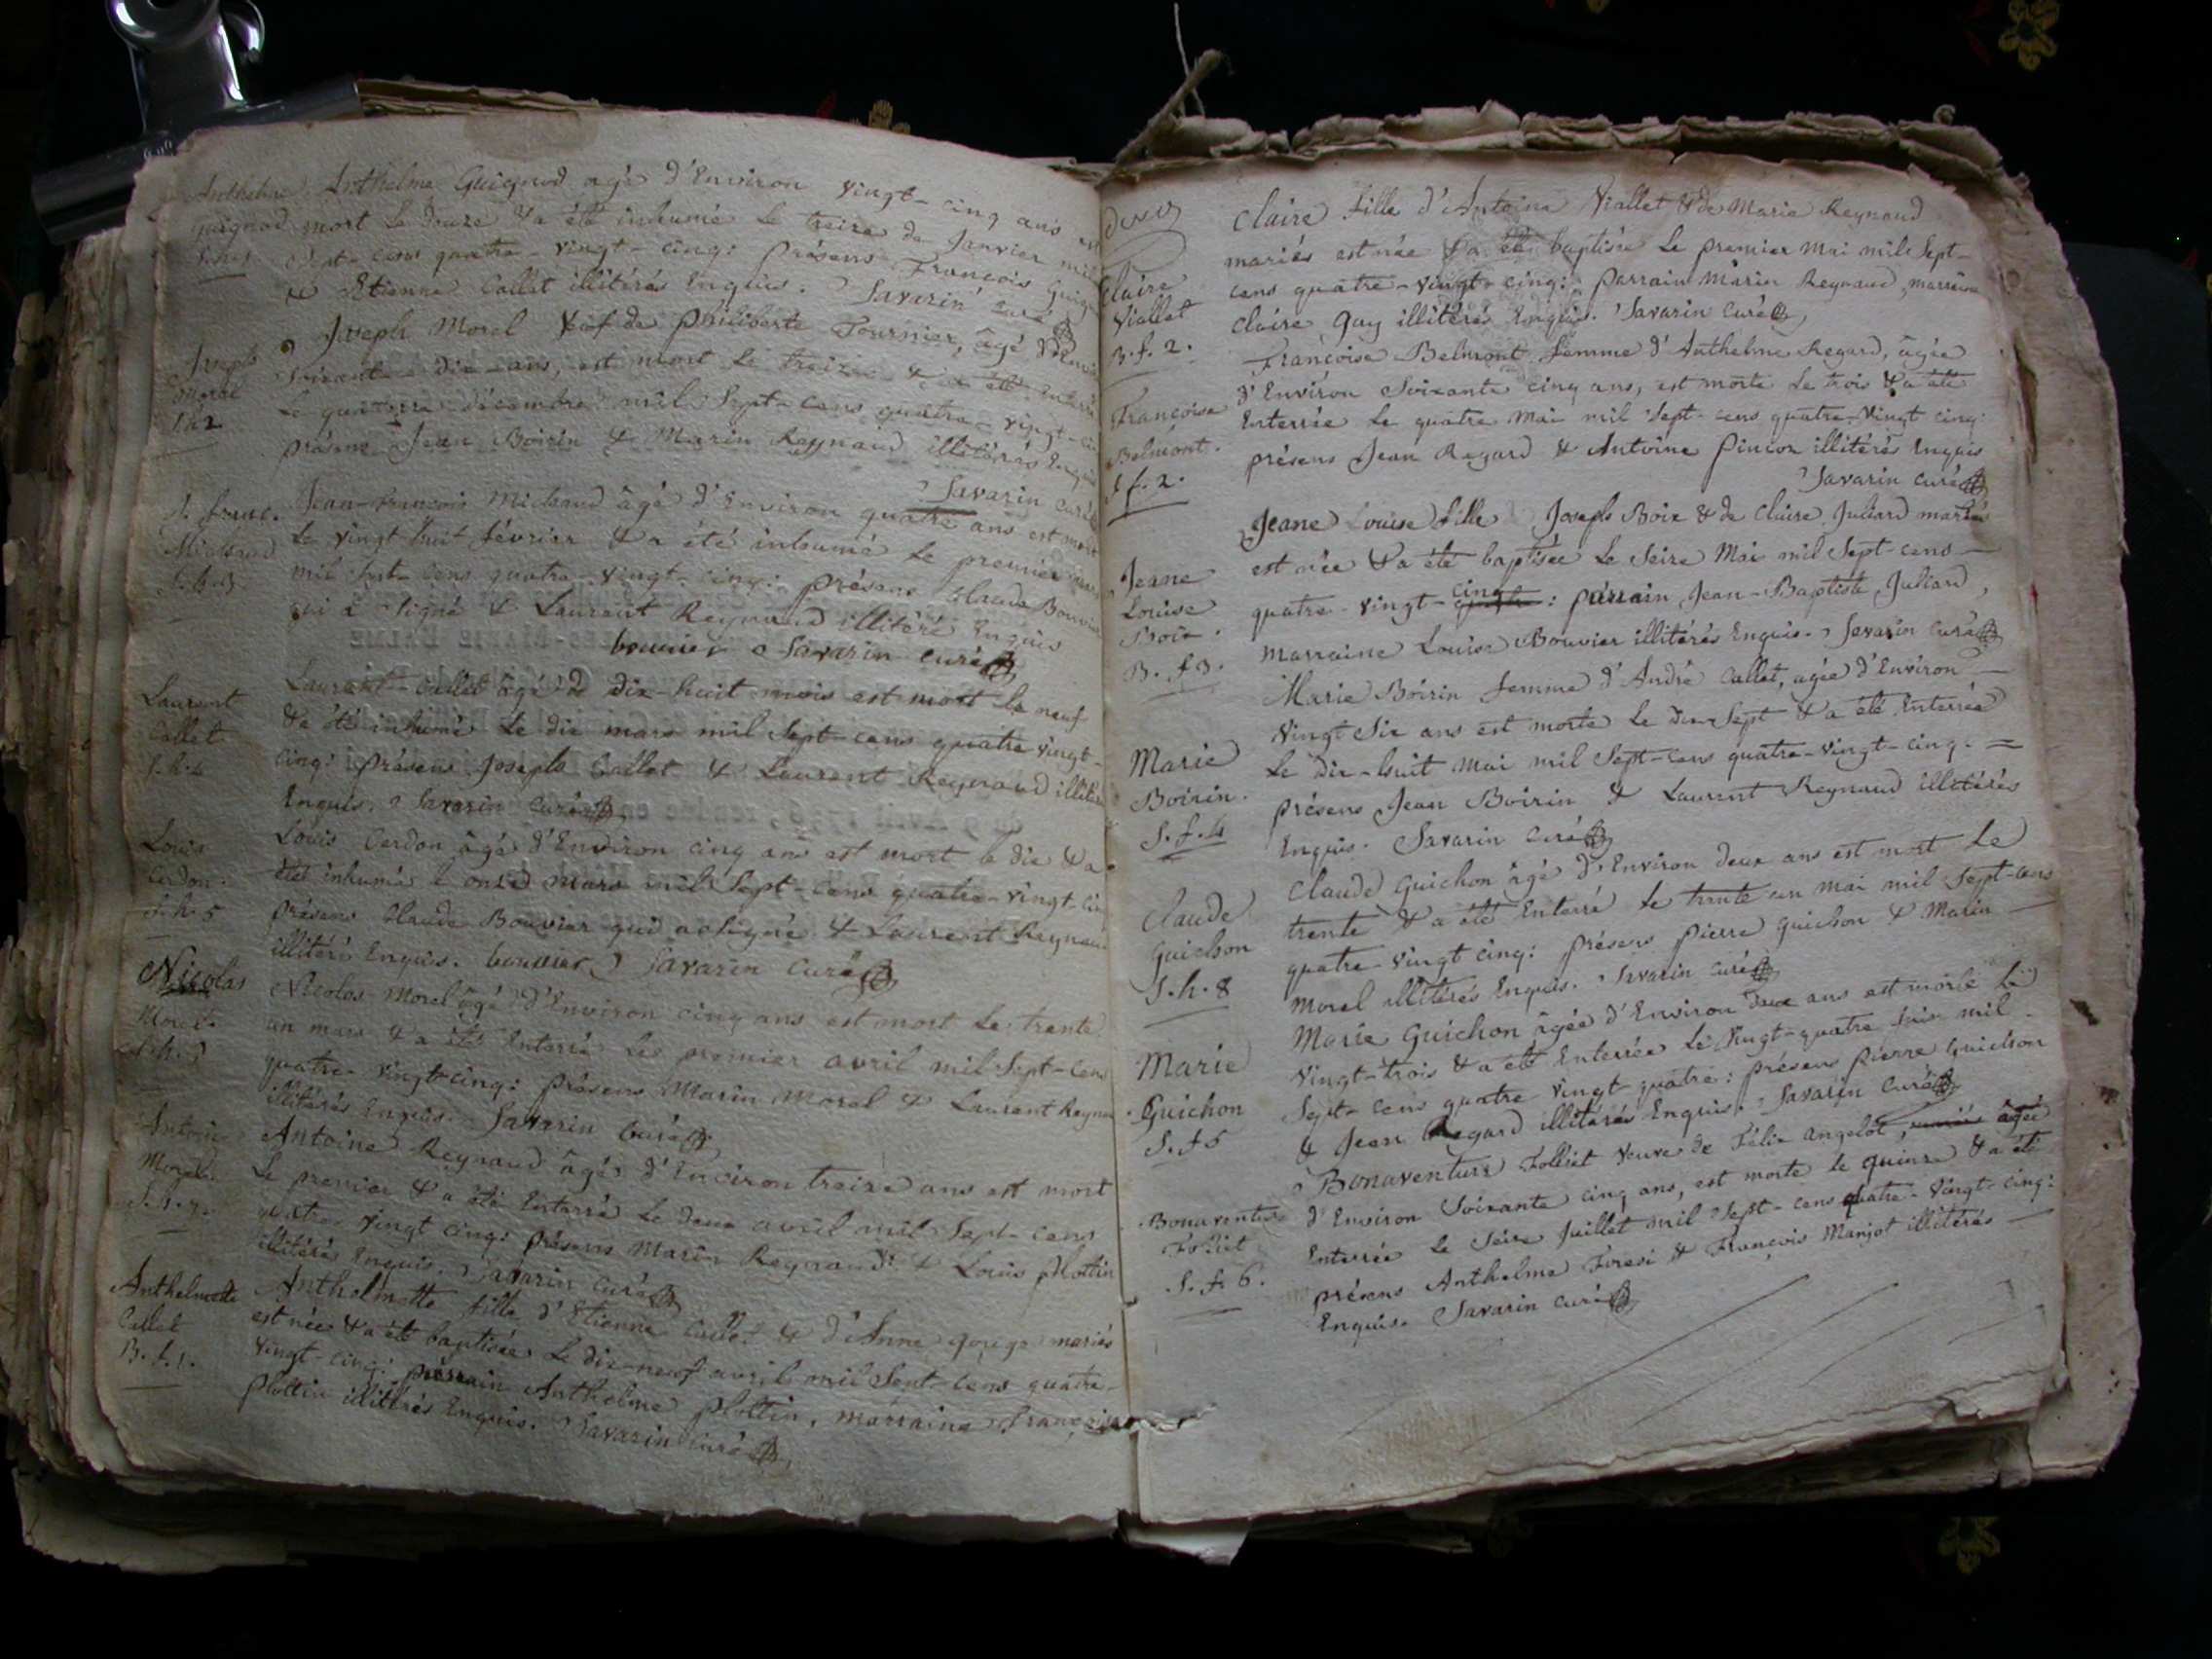 Anthelme Guignod âgé d'Environ vingt-cinq ans
guignod mort le douze & a été inhumé le treize de Janvier
Sept-cens quatre-vingt-cinq: présens François
& Etienne Callet illitérés Enquis. Savarin curé
Joseph Morel Vœf de Philiberte Fournier, âgé
Joseph
Morel
soixante-dix-ans, est mort le treize & a été
S.h.2
le quatorze décembre mil Sept-cens quatre-vingt-
présens Jean Boirin & Marin Reynaud illitérés
Savarin curé
J. franc.
Michaud
Jean-francois Michaud âgé d'Environ quatre ans est mort
le vingt huit février & a été inhumé le premier
mil Sept-cens quatre-vingt-cinq: présens Claude Bouvier
qui a signé & Laurent Reynaud illitéré Enquis
bouvier Savarin curé
Laurent
Callet
S.h.4
Laurent Callet âgé de dix-huit mois est mort le neuf
& a été inhumé le dix mars mil Sept-cens quatre vingt-
cinq: présens Joseph Callet & Laurent Reynaud
Enquis. Savarin curé
Louis
Cerdon.
S.h.5
Louis Cerdon âgé d'Environ cinq ans est mort le dix & a
été inhumé le onze mars mil Sept-cens quatre-vingt-
présens Claude Bouvier qui a signé & Laurent Reynaud
illitéré Enquis. bouvier Savarin curé
Nicolas
Morel
Nicolas Morel âgé d'Environ cinq ans est mort le trente
un mars & a été Enterré le premier avril mil Sept-cens
quatre-vingt-cinq: présens Marin Morel & Laurent
illitérés Enquis. Savarin curé
Antoine
S.h.7.
Antoine Reynaud âgé d'Environ treize ans est mort
le premier & a été Enterré le deux avril mil Sept-cens
quatre vingt cinq: présens Marin Reynaud & Louis plottin
illitérés Enquis. Savarin curé
Anthelmette
Callet
B.f.1.
Anthelmette fille d'Etienne Callet & d'Anne mariés
est née & a été baptisée le dix-neuf avril mil Sept-cens quatre-
vingt-cinq: parrain Anthelme plottin, marraine françoise
plottin illitérés Enquis. Savarin curé
Claire
Viallet
B.f.2.
Claire fille d'Antoine Viallet & de Marie Reynaud
mariés est née & a été baptisée le premier mai mil Sept-
cens quatre-vingt-cinq: parrain Marin Reynaud, marraine
Claire Gay illitérés Enquis. Savarin curé
Françoise
Belmont.
S.f.2.
Françoise Belmont femme d'Anthelme Regard, âgée
d'Environ Soixante cinq ans, est morte le trois & a été
Enterrée le quatre mai mil Sept-cens quatre-vingt cinq:
présens Jean Regard & Antoine Pinçon illitérés Enquis
Savarin curé
Jeane
Louise
Boix.
B.f.3.
Jeane Louise fille Joseph Boix & de Claire Juliard mariés
est née & a été baptisée le Seize Mai mil Sept-cens
quatre-vingt-cinq: parrain Jean-Baptiste Juliard,
Marraine Louise Bouvier illitérés Enquis. Savarin curé
Marie
Boirin.
S.f.4
Marie Boirin femme d'André Callet, agée d'Environ
vingt Six ans est morte le dix-Sept & a été Enterrée
le dix-huit mai mil Sept-cens quatre-vingt-cinq.
présens Jean Boirin & Laurent Reynaud illitérés
Enquis. Savarin curé
Claude
Guichon
S.h.8
Claude Guichon âgé d'Environ deux ans est mort le
trente & a été Enterré le trente un mai mil Sept-cens
quatre-vingt cinq: présens Pierre Guichon & Marin
Morel illitérés Enquis. Savarin curé
Marie
Guichon
S.f.5
Marie Guichon âgée d'Environ deux ans est morte le
vingt-trois & a été Enterrée le vingt-quatre Juin mil
Sept-cens quatre vingt-quatre: présens Pierre Guichon
& Jean Regard illitérés Enquis. Savarin curé
Bonaventure
Folliet
S.f.6.
Bonaventure Folliet veuve de Félix Angelot, âgée
d'Environ Soixante cinq ans, est morte le quinze & a été
Enterrée le Seize Juillet mil Sept-cens quatre-vingt-cinq:
présens Anthelme Forasi & François Manjot illitérés
Enquis. Savarin curé